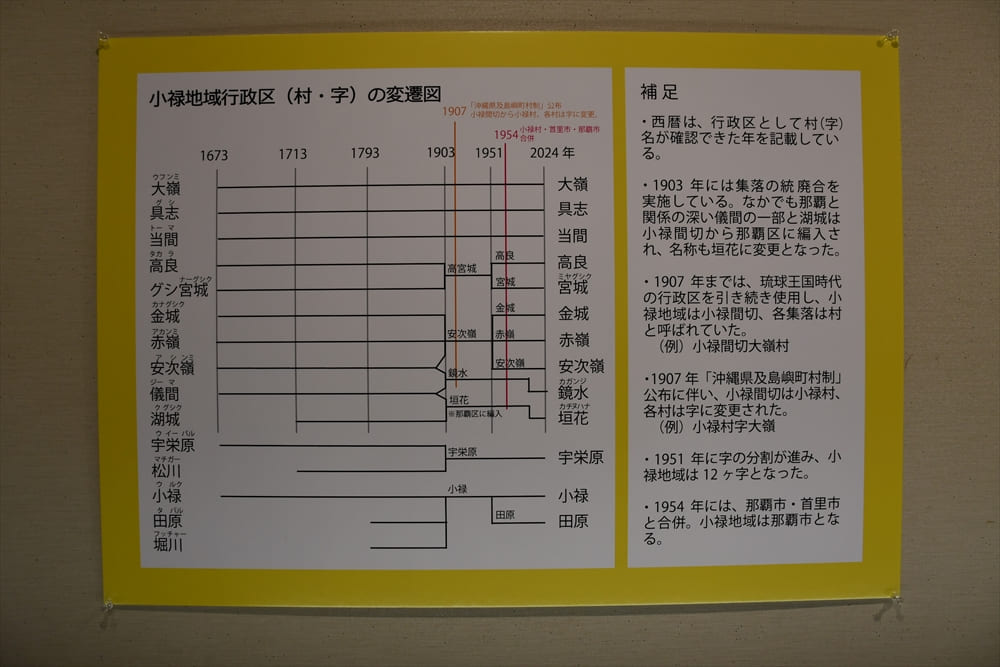 小禄地域行政区（村・字）の変遷図
1907「沖縄県及島嶼町村制」公布
小禄間切から小禄村、各村は字に変更。
1954 小禄村・首里市・那覇市
合併
1673 1713 1793 1903 1951 2024 年
ウフンミ
大嶺 大嶺
グシ
具志 具志
トーマ
当間 当間
タカラ
高良 高宮城 高良 高良
ナーグシク ミヤグシク
グシ宮城 宮城 宮城
カナグシク
金城 金城 金城
アカンミ
赤嶺 安次嶺 赤嶺 赤嶺
アシンミ
安次嶺 安次嶺 安次嶺
ジーマ カガンジ
儀間 鏡水 鏡水
クグシク カチヌハナ
湖城 垣花 垣花
※那覇区に編入
ウイーバル
宇栄原 宇栄原 宇栄原
マチガー
松川
ウルク
小禄 小禄 小禄
タバル
田原 田原 田原
フッチャー
堀川
補足
・西暦は、行政区として村(字)
名が確認できた年を記載してい
る。
・1903 年には集落の統廃合を
実施している。なかでも那覇と
関係の深い儀間の一部と湖城は
小禄間切から那覇区に編入さ
れ、名称も垣花に変更となった。
・1907 年までは、琉球王国時代
の行政区を引き続き使用し、小
禄地域は小禄間切、各集落は村
と呼ばれていた。
（例）小禄間切大嶺村
・1907 年「沖縄県及島嶼町村制」
公布に伴い、小禄間切は小禄村、
各村は字に変更された。
（例）小禄村字大嶺
・1951 年に字の分割が進み、小
禄地域は 12 ヶ字となった。
・1954 年には、那覇市・首里市
と合併。小禄地域は那覇市とな
る。